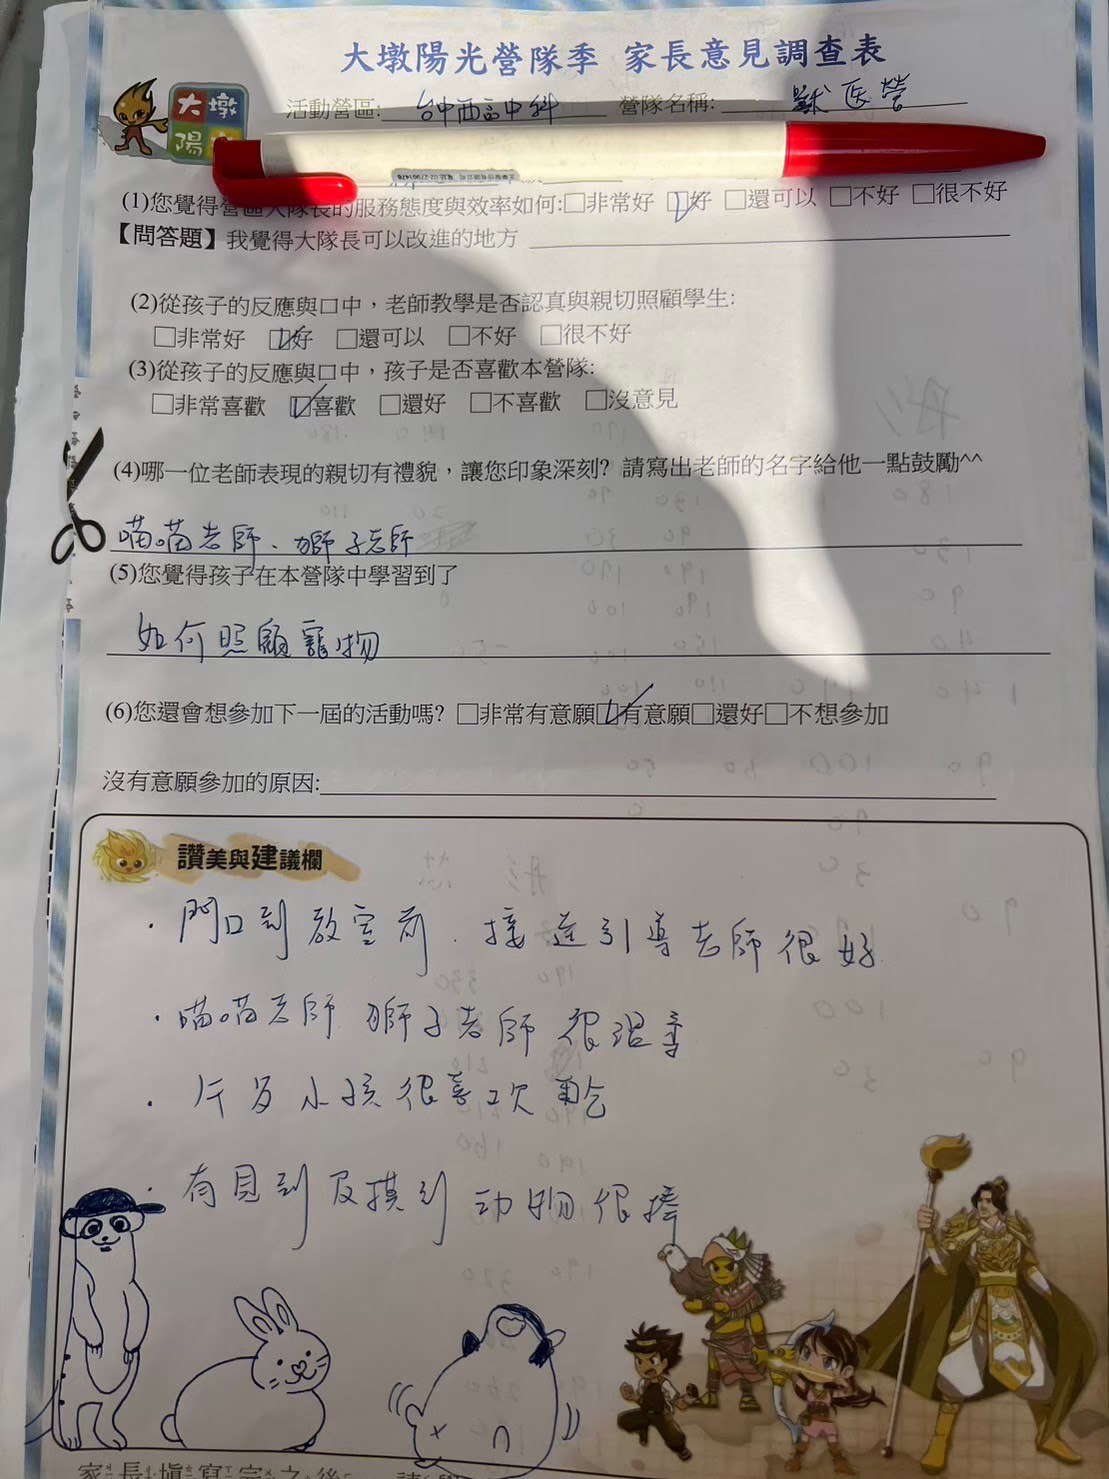 大墩陽光營隊季 家長意見調查表
大墩
陽
活動營區: 台中西區中科 營隊名稱: 獸医營
(1)您覺得營區大隊長的服務態度與效率如何:□非常好 ☑好 □還可以 □不好 □很不好
【問答題】我覺得大隊長可以改進的地方
(2)從孩子的反應與口中，老師教學是否認真與親切照顧學生:
□非常好 ☑好 □還可以 □不好 □很不好
(3)從孩子的反應與口中，孩子是否喜歡本營隊:
□非常喜歡 ☑喜歡 □還好 □不喜歡 □沒意見
(4)哪一位老師表現的親切有禮貌，讓您印象深刻? 請寫出老師的名字給他一點鼓勵^^
喵喵老師、獅子老師
(5)您覺得孩子在本營隊中學習到了
如何照顧寵物
(6)您還會想參加下一屆的活動嗎? □非常有意願☑有意願□還好□不想參加
沒有意願參加的原因:
讚美與建議欄
· 門口到教室前、接送引導老師很好
· 喵喵老師 獅子老師 很溫柔
· 小孩很喜歡
· 有見到及摸到 动物很棒
家長填寫完之後